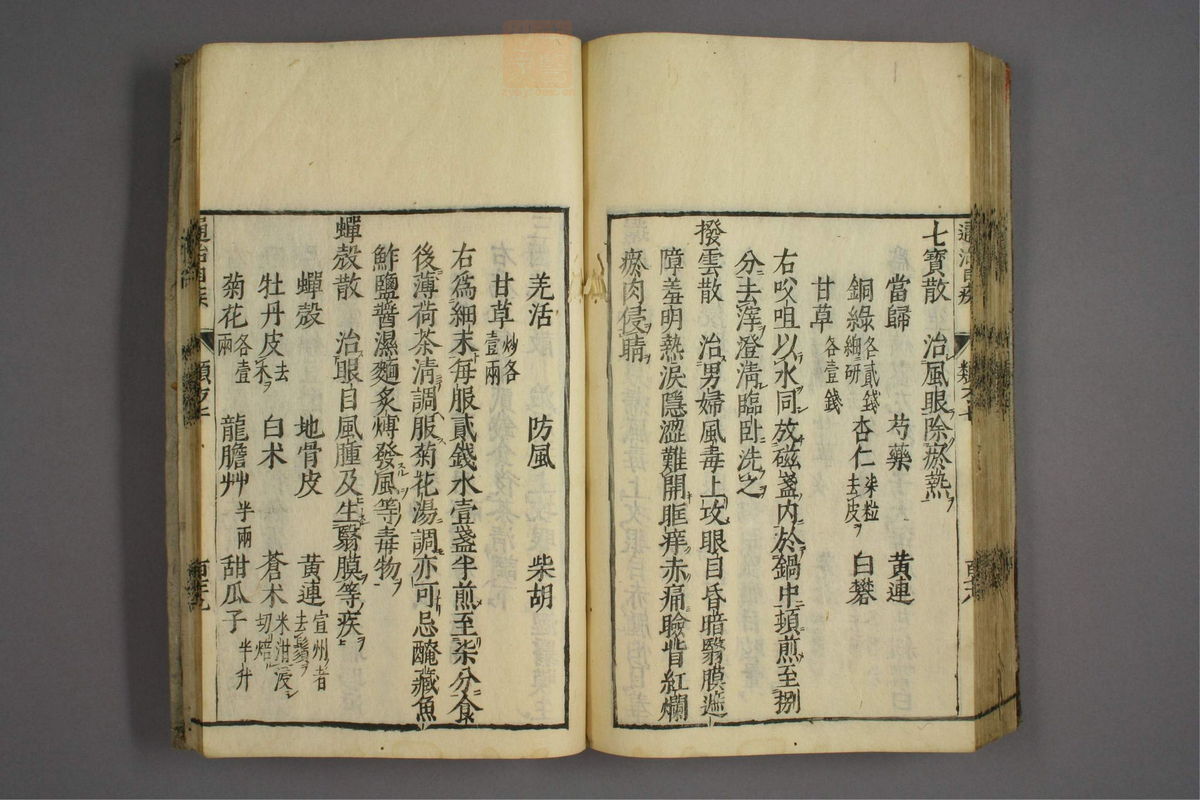 七寶散 治風眼除瘀熱
當歸 芍藥 黃連
銅綠各貳錢細研 杏仁柒粒去皮 白礬
甘草各壹錢
右㕮咀以水同放磁盞內於鍋中頓煎至捌
分去滓澄清臨臥洗之
撥雲散 治男婦風毒上攻眼目昏暗翳膜遮
障羞明熱淚隱澀難開眶痒赤痛瞼眥紅爛
瘀肉侵睛
羌活 防風 柴胡
甘草炒各壹兩
右爲細末每服貳錢水壹盞半煎至柒分食
後薄荷茶清調服菊花湯調亦可忌醃藏魚
鮓鹽醬濕麵炙煿發風等毒物
蟬殼散 治眼目風腫及生翳膜等疾
蟬殼 地骨皮 黃連宣州者去鬚
牡丹皮去木 白术 蒼术米泔浸切焙
菊花各壹兩 龍膽艸半兩 甜瓜子半升